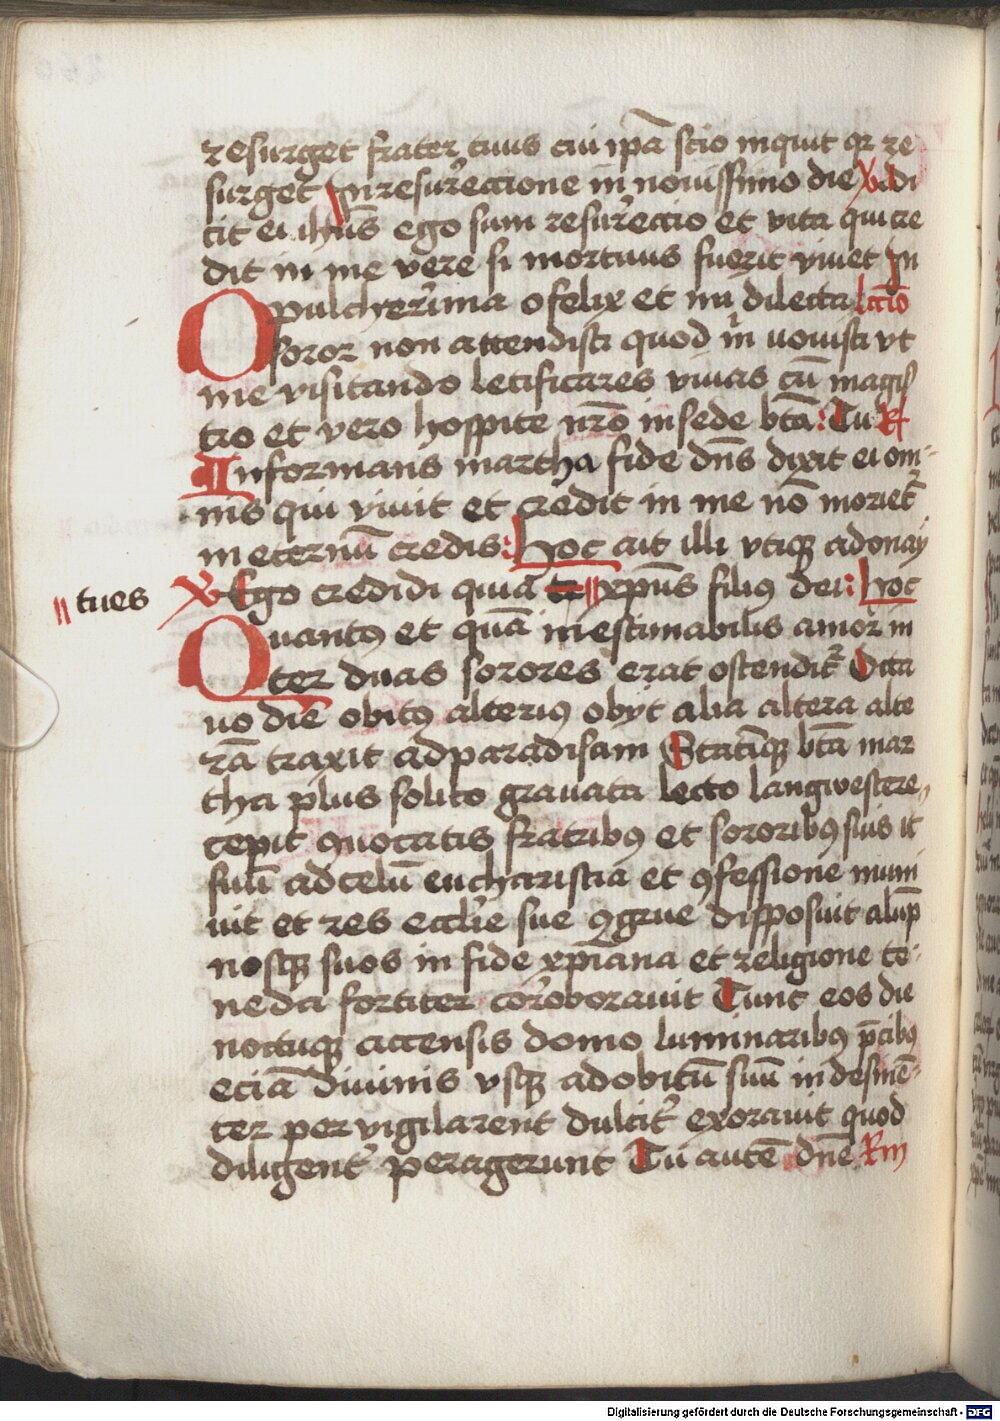 resurget frater tuus cui ipā scio inquit qr re
surget In resur̄ectione in nouissimo die V̶ di
cit ei ihūs ego sum resur̄ectio et vita qui cre
dit in me vere si mortuus fuerit viuet In
O pulcher̄ima o felix et mi dilecta lc̄cio
soror non attendisti quod in uouisti vt
me visitando letificares viuas cū magis
tro et vero hospite nr̄o in sede btā: Tu R̸
Informans martha fide dn̄s dixit ei om-
nis qui viuit et credit in me nō moriet᷑
in eternū credis: Hoc ait illi vtiqꝫ adonay
V̶ Ego credidi quia xpūs filiꝰ dei: Hoc
tu es
Quantꝰ et quā inestimabilis amor in
ter duas sorores erat ostendit᷑ Octa
uo die obitꝰ alteriꝰ obyt alia altera alte
rā traxit ad paradisam Statīqꝫ btā mar
tha plus solito grauata lecto langwescere
cepit quocatis fratribꝰ et sororibꝰ suis it
suū ad celū eucharistia et ꝯfessione muni
uit et res eccl̄ie sue ꝯgrue disposuit alūp
nosqꝫ suos in fide xp̄iana et religione te-
neda fortiter cor̄oborauit Tunc eos die
noctuqꝫ accensis domo luminaribꝰ p̄cibꝰ
eciā diuinis vsqꝫ ad obitū suū indesinē-
ter per vigilarent dulcit᷑ exorauit quod
diligent᷑ peragerunt Tu autē dn̄e Rm
Digitalisierung gefördert durch die Deutsche Forschungsgemeinschaft - DFG